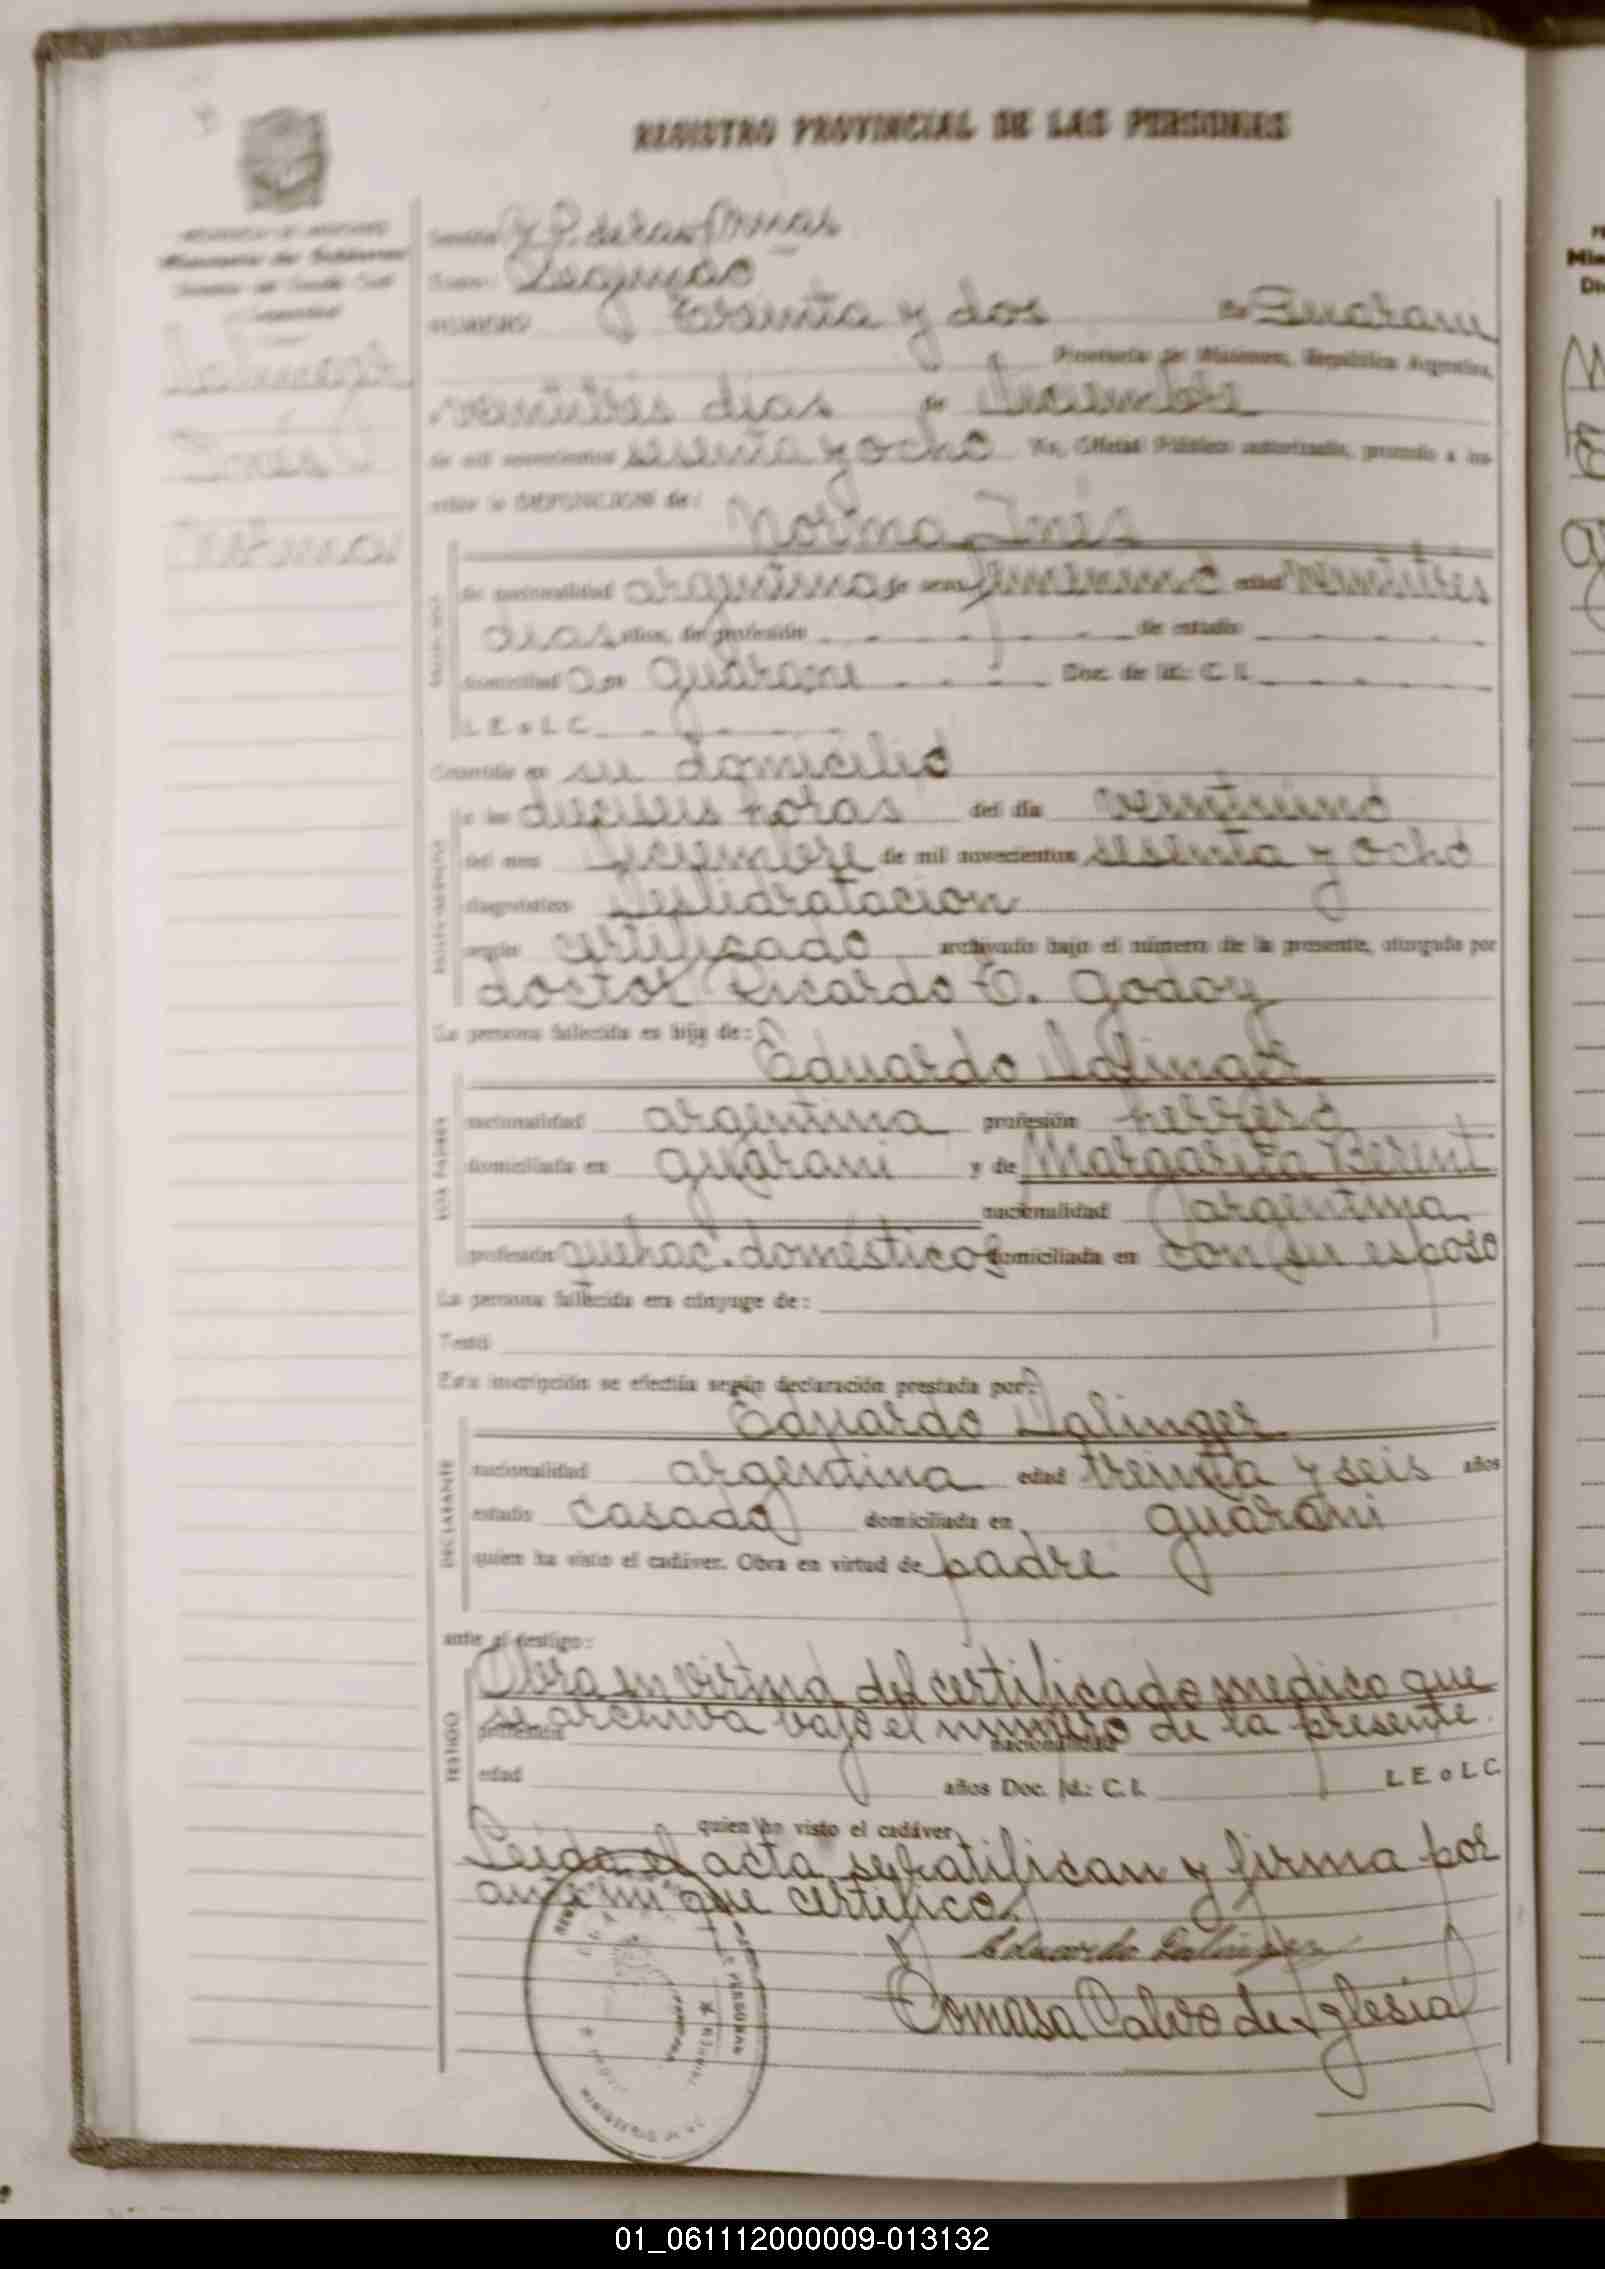 REGISTRO PROVINCIAL DE LAS PERSONAS
Ministerio de Gobierno
Sección
Tomo:
NUMERO Treinta y dos En Guarani
Provincia de Misiones, República Argentina,
veintitrés dias de Diciembre
de mil novecientos sesenta y ocho Yo, Oficial Público autorizado, procedo a ins-
cribir la DEFUNCION de:
Norma Inés
de nacionalidad argentina de sexo femenino edad veintitres
dias años, de profesión de estado
domiciliad a en guarani Doc. de Id.: C. I.
L E o L C
Ocurrida en su domicilio
a las dieciseis horas del día veintiuno
del mes Diciembre de mil novecientos sesenta y ocho
diagnóstico Deshidratacion
según certificado archivado bajo el número de la presente, otorgado por
doctor Ricardo E. Godoy
La persona fallecida es hija de:
Eduardo Dalinger
LOS PADRES
nacionalidad argentina profesión herrero
domiciliado en guarani y de Margarita Berent
nacionalidad argentina
profesión quehac. domésticos domiciliada en con su esposo
La persona fallecida era cónyuge de:
Testó
Esta inscripción se efectúa según declaración prestada por:
Eduardo Dalinger
DECLARANTE
nacionalidad argentina edad treinta y seis años
estado casado domiciliada en guarani
quien ha visto el cadáver. Obra en virtud de padre
ante el testigo:
Obra en virtud del certificado medico que
se archiva bajo el numero de la presente.
TESTIGO
profesión nacionalidad
edad años Doc. Id.: C. I. L E o L C
quien ha visto el cadáver
Leida el acta se ratifican y firma por
ante mi que certifico.
Eduardo Dalinger
Tomasa Calvo de Iglesia
01_061112000009-013132